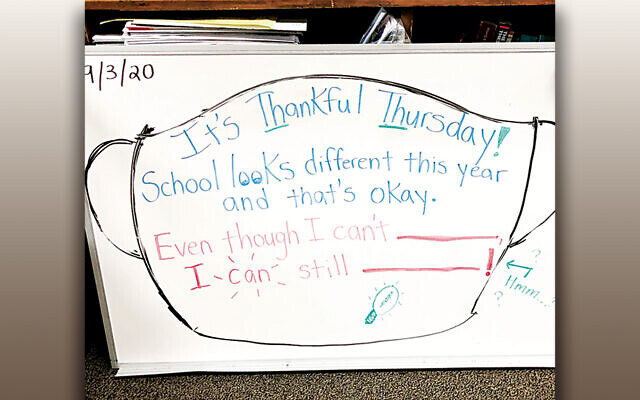 9/3/20
It's Thankful Thursday!
School looks different this year
and that's okay.
Even though I can't ________,
I can still ________!
? Hmm... ?